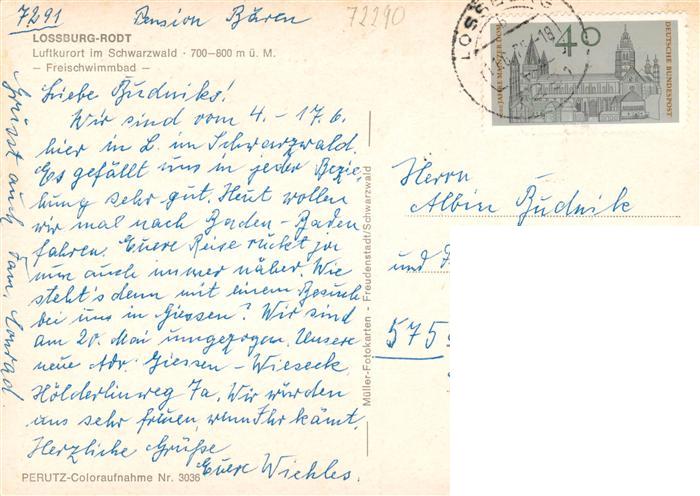 7291 Pension Bären 72290
LOSSBURG-RODT
Luftkurort im Schwarzwald · 700–800 m ü. M.
– Freischwimmbad –
Liebe Budniks!
Wir sind vom 4. - 17.6.
hier in L. im Schwarzwald.
Es gefällt uns in jeder Bezie-
hung sehr gut. Heut wollen
wir mal nach Baden-Baden
fahren. Euere Reise rückt ja
nun auch immer näher. Wie
steht's denn mit einem Besuch
bei uns in Giessen? Wir sind
am 20. Mai umgezogen. Unsere
neue Adr. Giessen - Wieseck
Hölderlinweg 7a. Wir würden
uns sehr freuen, wenn Ihr kämt.
Herzliche Grüße
Euere Wiehles.
PERUTZ-Coloraufnahme Nr. 3036
Grüsst auch Fam. Conrad.
Müller-Fotokarten - Freudenstadt/Schwarzwald
LOSSBURG
40
1000 JAHRE MAINZER DOM
DEUTSCHE BUNDESPOST
Herrn
Albin Budnik
und
575